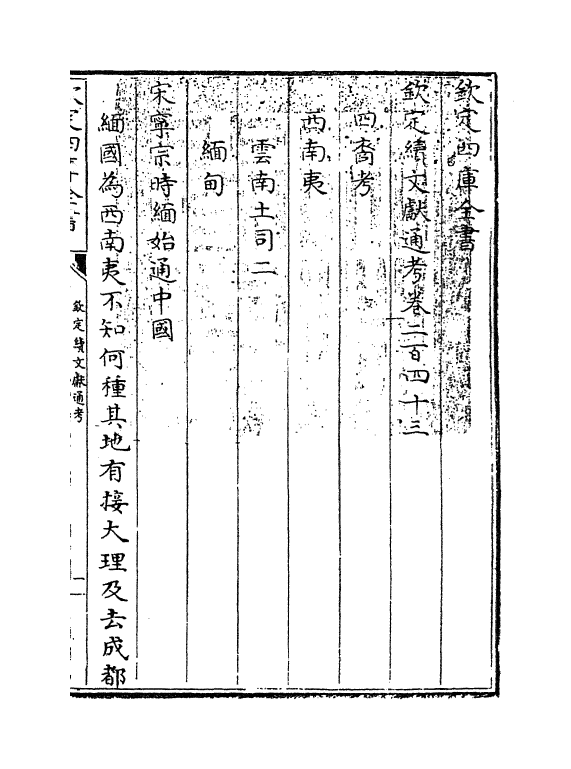 欽定四庫全書
欽定續文獻通考卷二百四十三
四裔考
西南夷
雲南土司二
緬甸
宋寧宗時緬始通中國
緬國為西南夷不知何種其地有接大理及去成都
欽定四庫全書
欽定續文獻通考